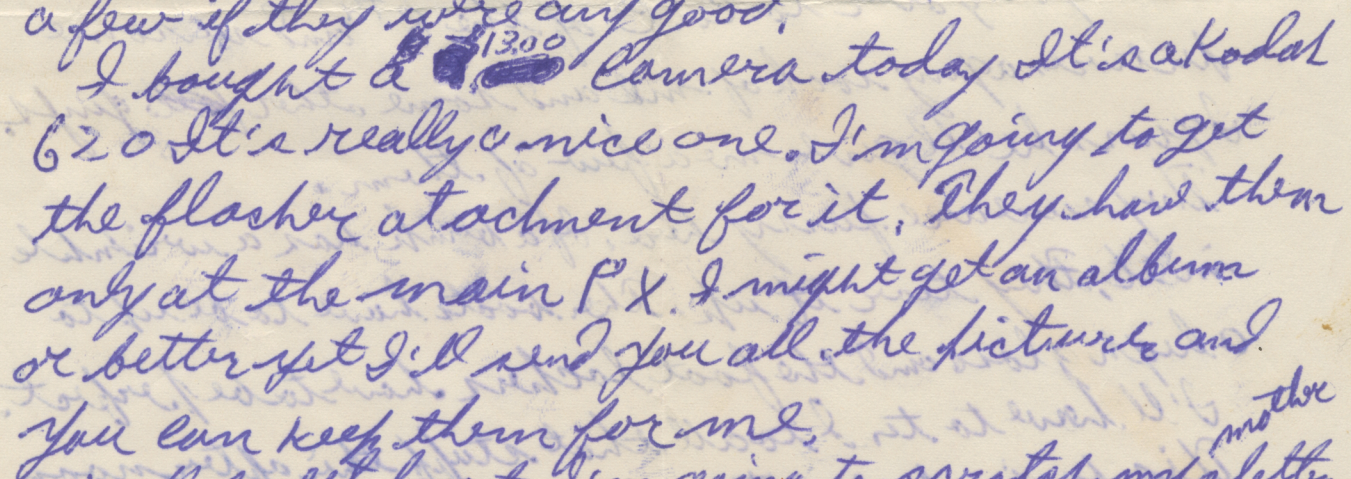 a few if they were any good.
I bought a $13.00 Camera today It's a Kodak
620 It's really a nice one. I'm going to get
the flasher atachment for it. They have them
only at the main PX. I might get an album
or better yet I'll send you all the pictures and
you can keep them for me.
mother
going to my letter